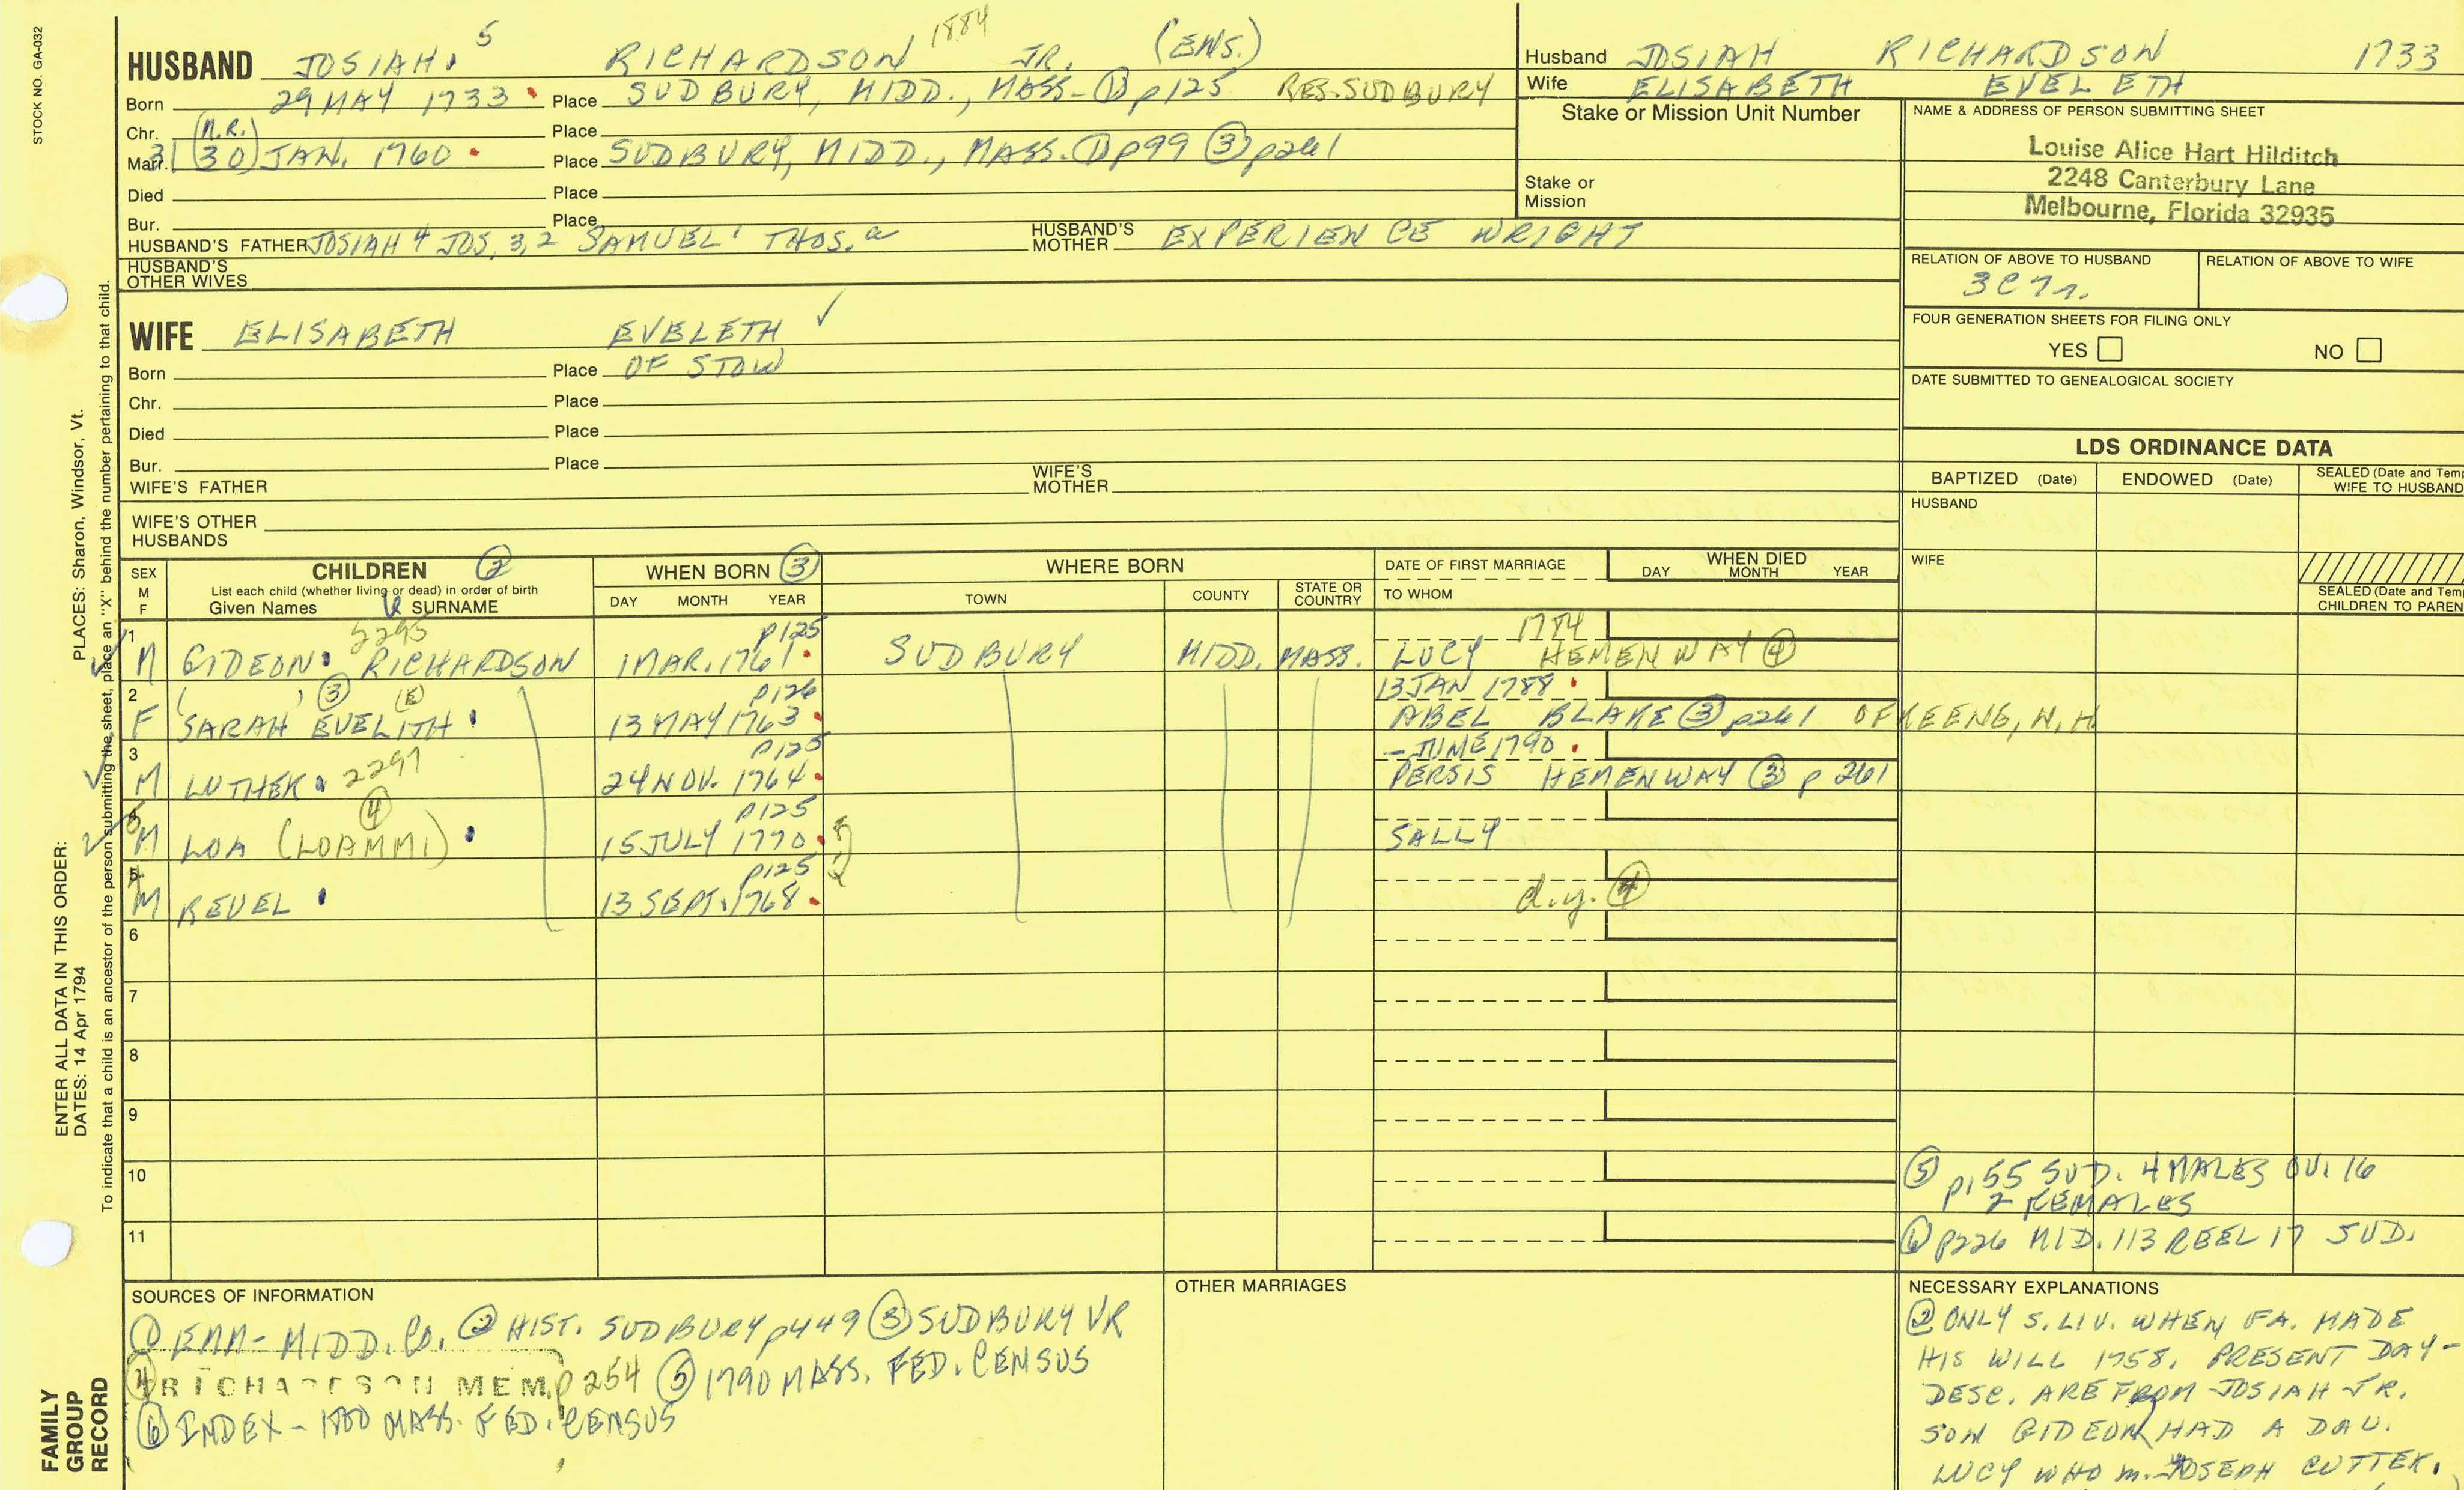 STOCK NO. GA-032
HUSBAND JOSIAH 5 RICHARDSON 1884 JR. (ENS.)
Born 29 MAY 1733 Place SUDBURY, MIDD., MASS- ① p125 RES. SUDBURY
Chr. (N.R.) Place
Marr. 31 (30) JAN. 1760 Place SUDBURY, MIDD., MASS. ① p99 ③ p261
Died Place
Bur. Place
HUSBAND'S FATHER JOSIAH 4 JOS. 3,2 SAMUEL 1 THOS. a HUSBAND'S MOTHER EXPERIENCE WRIGHT
HUSBAND'S OTHER WIVES
WIFE ELISABETH EVELETH ✓
Born Place OF STOW
Chr. Place
Died Place
Bur. Place
WIFE'S FATHER WIFE'S MOTHER
WIFE'S OTHER HUSBANDS
Husband JOSIAH RICHARDSON 1733
Wife ELISABETH EVELETH
Stake or Mission Unit Number
Stake or Mission
NAME & ADDRESS OF PERSON SUBMITTING SHEET
Louise Alice Hart Hilditch
2248 Canterbury Lane
Melbourne, Florida 32935
RELATION OF ABOVE TO HUSBAND RELATION OF ABOVE TO WIFE
3C7r.
FOUR GENERATION SHEETS FOR FILING ONLY
YES NO
DATE SUBMITTED TO GENEALOGICAL SOCIETY
LDS ORDINANCE DATA
BAPTIZED (Date) ENDOWED (Date) SEALED (Date and Temp
WIFE TO HUSBAND
HUSBAND
WIFE
SEALED (Date and Temp
CHILDREN TO PAREN
SEX M F CHILDREN ② WHEN BORN ③ WHERE BORN DATE OF FIRST MARRIAGE WHEN DIED
List each child (whether living or dead) in order of birth
Given Names SURNAME DAY MONTH YEAR TOWN COUNTY STATE OR COUNTRY TO WHOM DAY MONTH YEAR
1 2295 p125 1784
M GIDEON RICHARDSON 1 MAR. 1761 SUDBURY MIDD. MASS. LUCY HEMENWAY ④
2 ( ) ③ (E) p126 13 JAN 1788
F SARAH EVELITH 13 MAY 1763 ABEL BLAKE ③ p261 OF KEENE, N.H.
3 p125 - JUNE 1790
M LUTHER 2297 24 NOV. 1764 PERSIS HEMENWAY ③ p 261
④ p125
M LOA (LOAMMI) 15 JULY 1770 SALLY
p125
M REUEL 13 SEPT. 1768 d.y. ④
6
7
8
9
10
11
⑤ p155 SUD. 4 MALES OV. 16
2 FEMALES
⑥ p226 MID. 113 REEL 17 SUD.
SOURCES OF INFORMATION
① EMM- MIDD. CO. ② HIST. SUDBURY p449 ③ SUDBURY VR
④ RICHARDSON MEM. p 254 ⑤ 1790 MASS. FED. CENSUS
⑥ INDEX - 1800 MASS. FED. CENSUS
OTHER MARRIAGES
NECESSARY EXPLANATIONS
② ONLY S. LIV. WHEN FA. MADE
HIS WILL 1758. PRESENT DAY-
DESC. ARE FROM JOSIAH JR.
SON GIDEON HAD A DAU.
LUCY WHO m. JOSEPH CUTTER.
PLACES: Sharon, Windsor, Vt.
To indicate that a child is an ancestor of the person submitting the sheet, place an "X" behind the number pertaining to that child.
ENTER ALL DATA IN THIS ORDER:
DATES: 14 Apr 1794
FAMILY
GROUP
RECORD